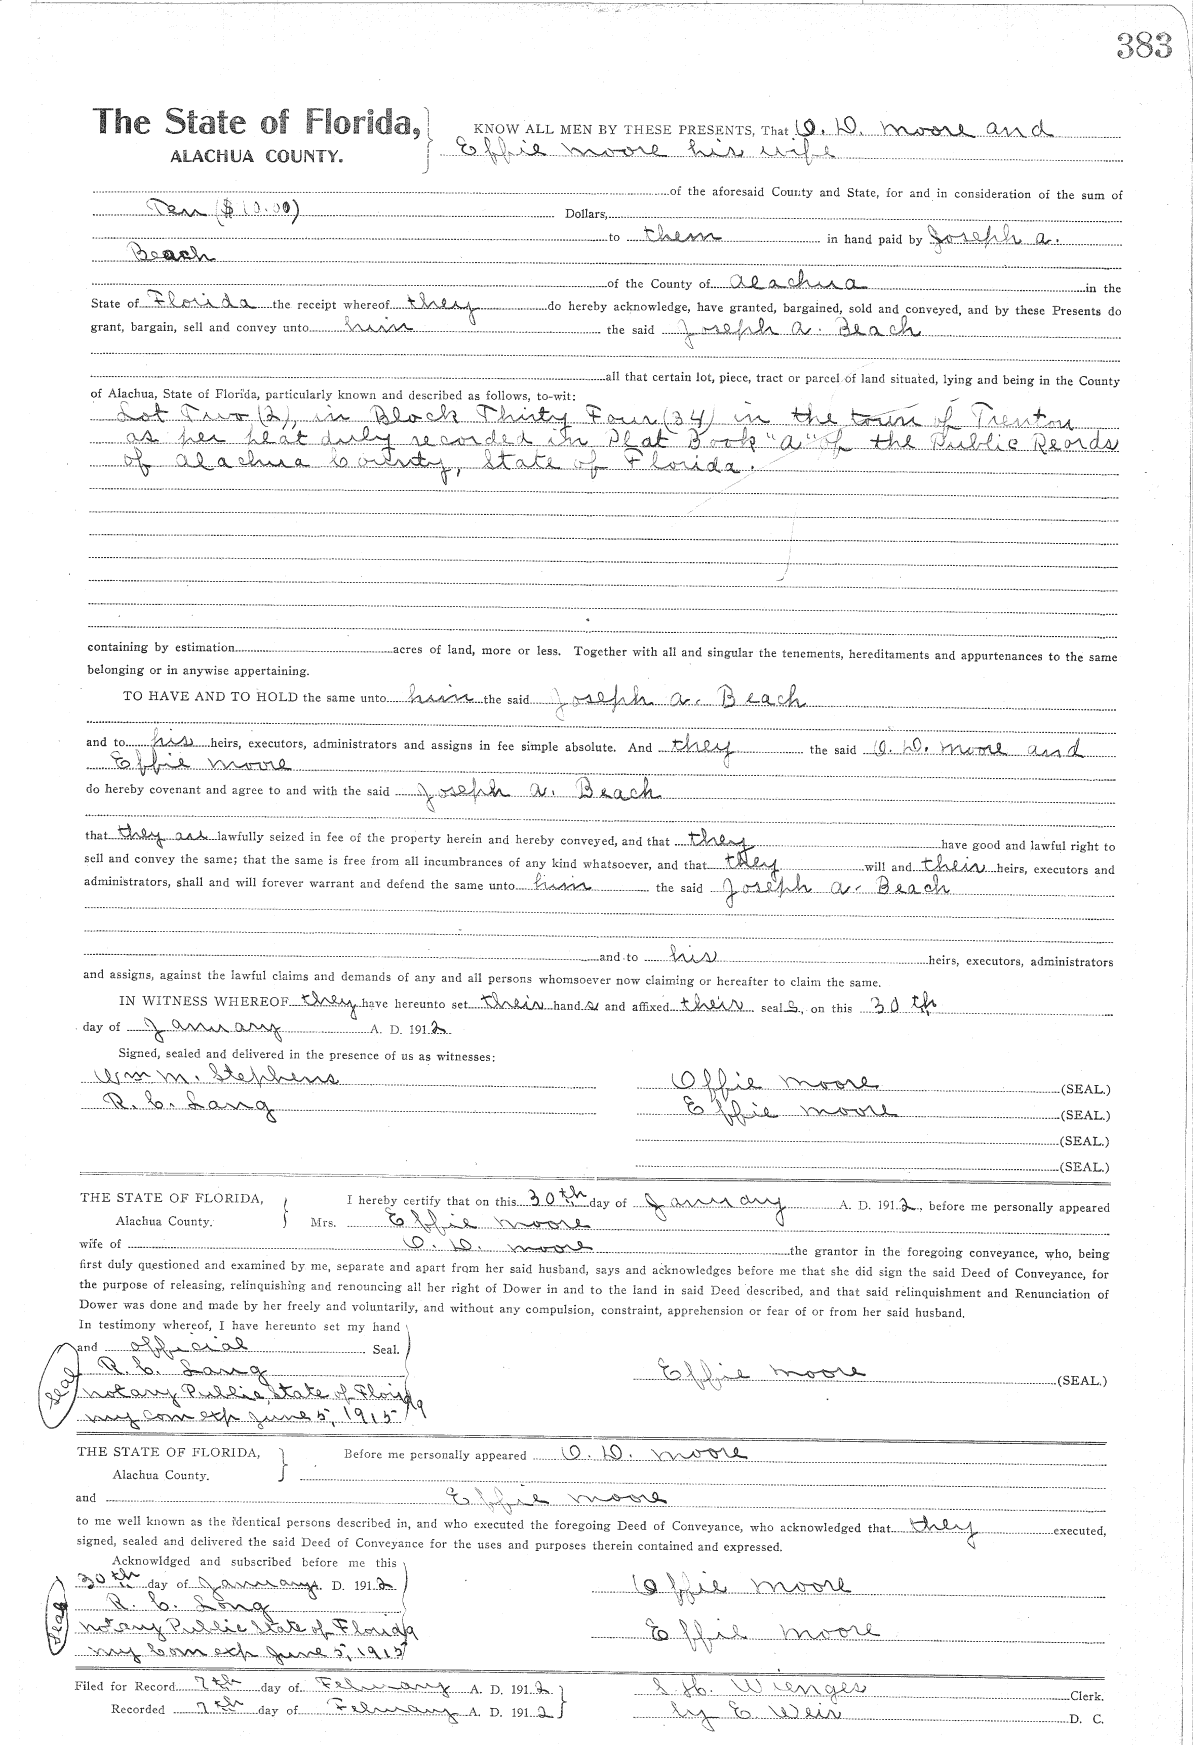 383
The State of Florida,
ALACHUA COUNTY.
KNOW ALL MEN BY THESE PRESENTS, That O. D. Moore and
Effie Moore his wife
of the aforesaid County and State, for and in consideration of the sum of
Ten ($10.00) Dollars,
to them in hand paid by Joseph A.
Beach
of the County of Alachua in the
State of Florida the receipt whereof they do hereby acknowledge, have granted, bargained, sold and conveyed, and by these Presents do
grant, bargain, sell and convey unto him the said Joseph A. Beach
all that certain lot, piece, tract or parcel of land situated, lying and being in the County
of Alachua, State of Florida, particularly known and described as follows, to-wit:
Lot Two (2), in Block Thirty Four (34) in the town of Trenton
as per plat duly recorded in Plat Book "A" of the Public Reords
of Alachua County, State of Florida.
containing by estimation acres of land, more or less. Together with all and singular the tenements, hereditaments and appurtenances to the same
belonging or in anywise appertaining.
TO HAVE AND TO HOLD the same unto him the said Joseph A. Beach
and to his heirs, executors, administrators and assigns in fee simple absolute. And they the said O. D. Moore and
Effie Moore
do hereby covenant and agree to and with the said Joseph A. Beach
that they are lawfully seized in fee of the property herein and hereby conveyed, and that they have good and lawful right to
sell and convey the same; that the same is free from all incumbrances of any kind whatsoever, and that they will and their heirs, executors and
administrators, shall and will forever warrant and defend the same unto him the said Joseph A. Beach
and to his heirs, executors, administrators
and assigns, against the lawful claims and demands of any and all persons whomsoever now claiming or hereafter to claim the same.
IN WITNESS WHEREOF they have hereunto set their hands and affixed their seals, on this 30th
day of January A. D. 1912
Signed, sealed and delivered in the presence of us as witnesses:
Wm M. Stephens Offie Moore (SEAL.)
R. C. Lang Effie Moore (SEAL.)
(SEAL.)
(SEAL.)
THE STATE OF FLORIDA, I hereby certify that on this 30th day of January A. D. 1912, before me personally appeared
Alachua County. Mrs. Effie Moore
wife of O. D. Moore the grantor in the foregoing conveyance, who, being
first duly questioned and examined by me, separate and apart from her said husband, says and acknowledges before me that she did sign the said Deed of Conveyance, for
the purpose of releasing, relinquishing and renouncing all her right of Dower in and to the land in said Deed described, and that said relinquishment and Renunciation of
Dower was done and made by her freely and voluntarily, and without any compulsion, constraint, apprehension or fear of or from her said husband.
In testimony whereof, I have hereunto set my hand
and official Seal.
R. C. Lang Effie Moore (SEAL.)
Seal Notary Public, State of Florida
My com exp June 5, 1915
THE STATE OF FLORIDA, Before me personally appeared O. D. Moore
Alachua County.
and Effie Moore
to me well known as the identical persons described in, and who executed the foregoing Deed of Conveyance, who acknowledged that they executed,
signed, sealed and delivered the said Deed of Conveyance for the uses and purposes therein contained and expressed.
Acknowldged and subscribed before me this
30th day of January A. D. 1912 Offie Moore
R. C. Long
Seal Notary Public State of Florida Effie Moore
My Com exp June 5, 1915
Filed for Record 7th day of February A. D. 1912 S. H. Wienges Clerk.
Recorded 7th day of February A. D. 1912 by E. Weir D. C.